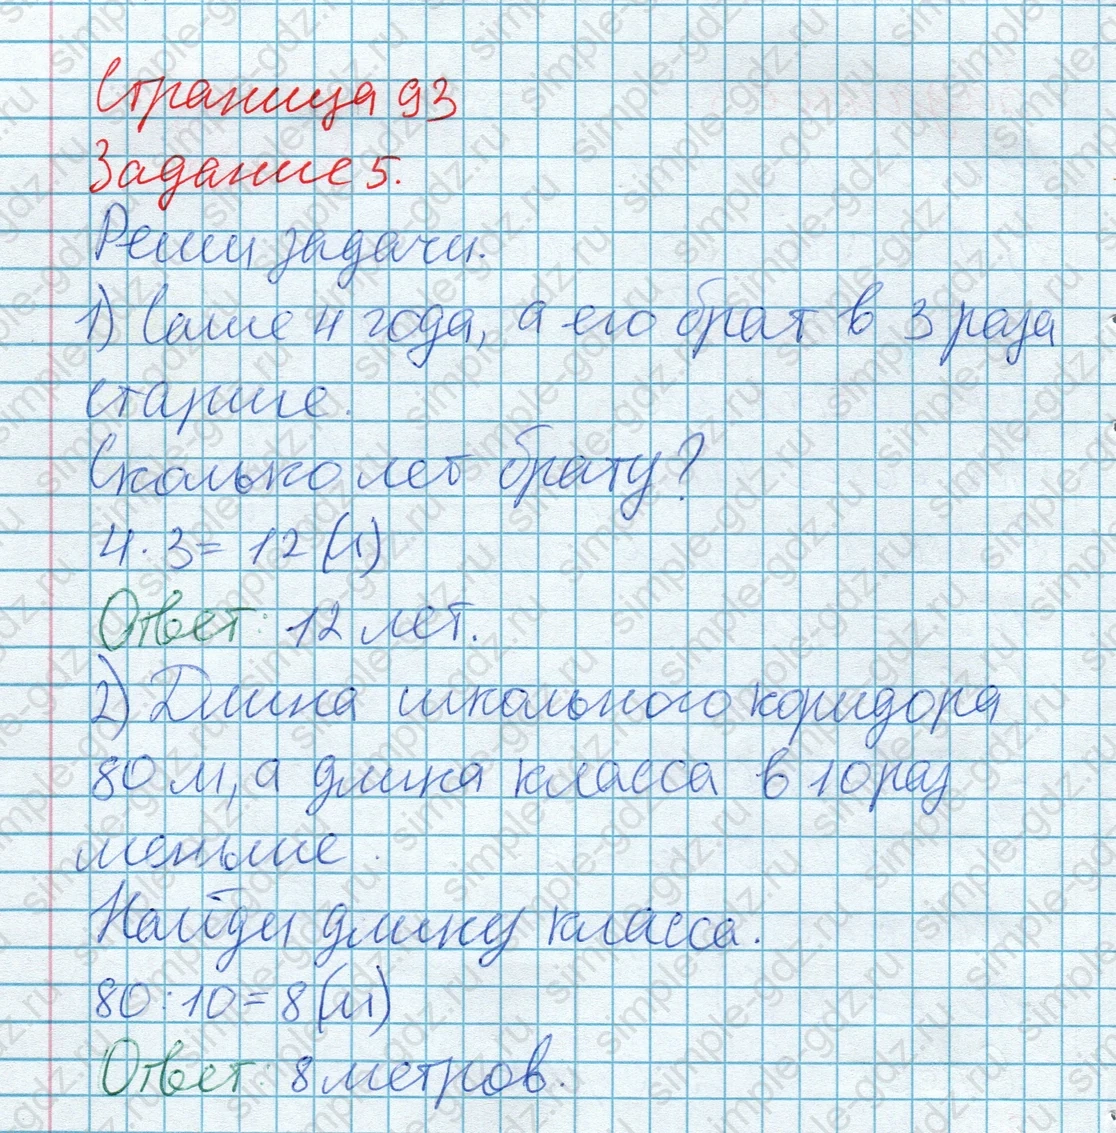 Страница 93
Задание 5.
Реши задачи.
1) Саше 4 года, а его брат в 3 раза
старше.
Сколько лет брату?
4 · 3 = 12 (л)
Ответ: 12 лет.
2) Длина школьного коридора
80 м, а длина класса в 10 раз
меньше.
Найди длину класса.
80 : 10 = 8 (м)
Ответ: 8 метров.
simple-gdz.ru